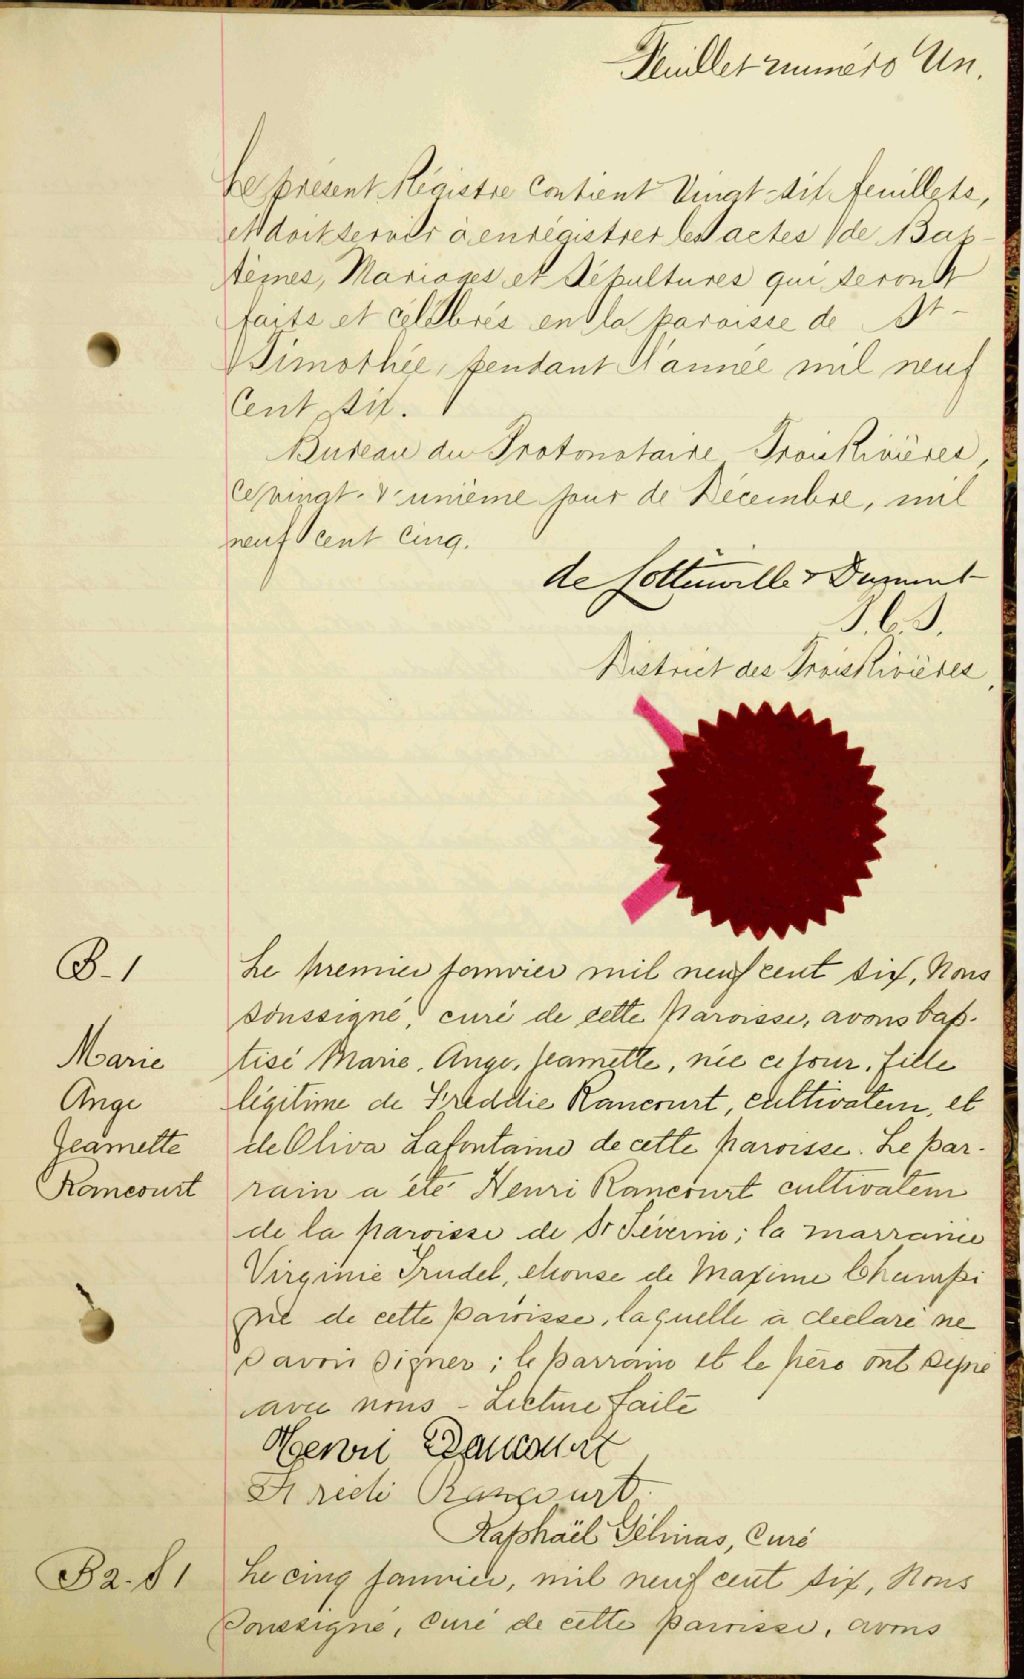 Feuillet numéro Un.
Le présent Régistre contient Vingt-six feuillets,
et doit servir à enrégistrer les actes de Bap-
têmes, Mariages et Sépultures qui seront
faits et célébrés en la paroisse de St-
Timothée, pendant l'année mil neuf
Cent six.
Bureau du Protonotaire Trois Rivières,
ce vingt-&-unième jour de Décembre, mil
neuf cent cinq.
de Lottinville & Dumont
P.C.S.
District des Trois Rivières,
B-1
Marie
Ange
Jeannette
Rancourt
Le premier janvier mil neuf cent six, Nous
soussigné, curé de cette paroisse, avons bap-
tisé Marie, Ange, Jeannette, née ce jour, fille
légitime de Freddie Rancourt, cultivateur, et
de Oliva Lafontaine de cette paroisse. Le par-
rain a été Henri Rancourt cultivateur
de la paroisse de St Séverin; la marraine
Virginie Trudel, épouse de Maxime Champi
gné de cette paroisse, laquelle a declaré ne
savoir signer; le parrain et le père ont signé
avec nous - Lecture faite
Henri Rancourt
Fredi Rancourt.
Raphaël Gélinas, Curé
B2-S1
Le cinq janvier, mil neuf cent six, Nous
soussigné, curé de cette paroisse, avons